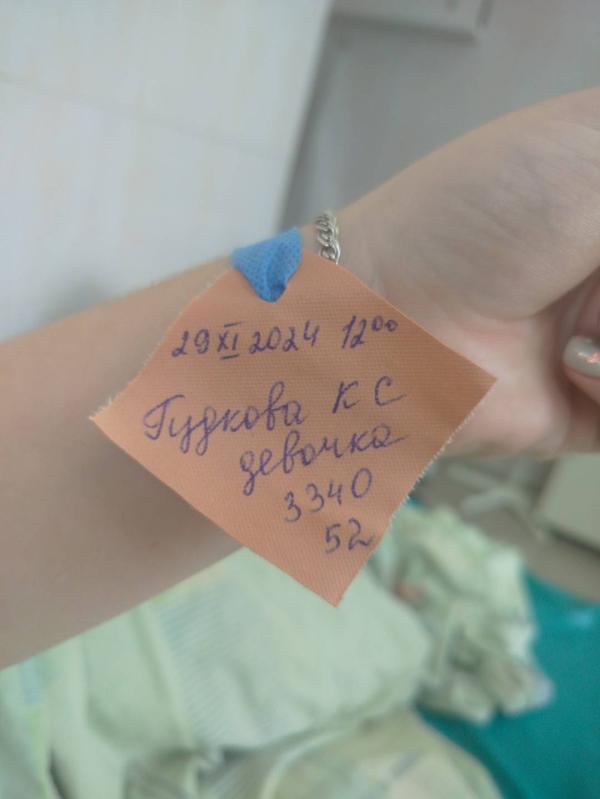 29 XI 2024 12⁰⁰
Гудкова К С
девочка
3340
52